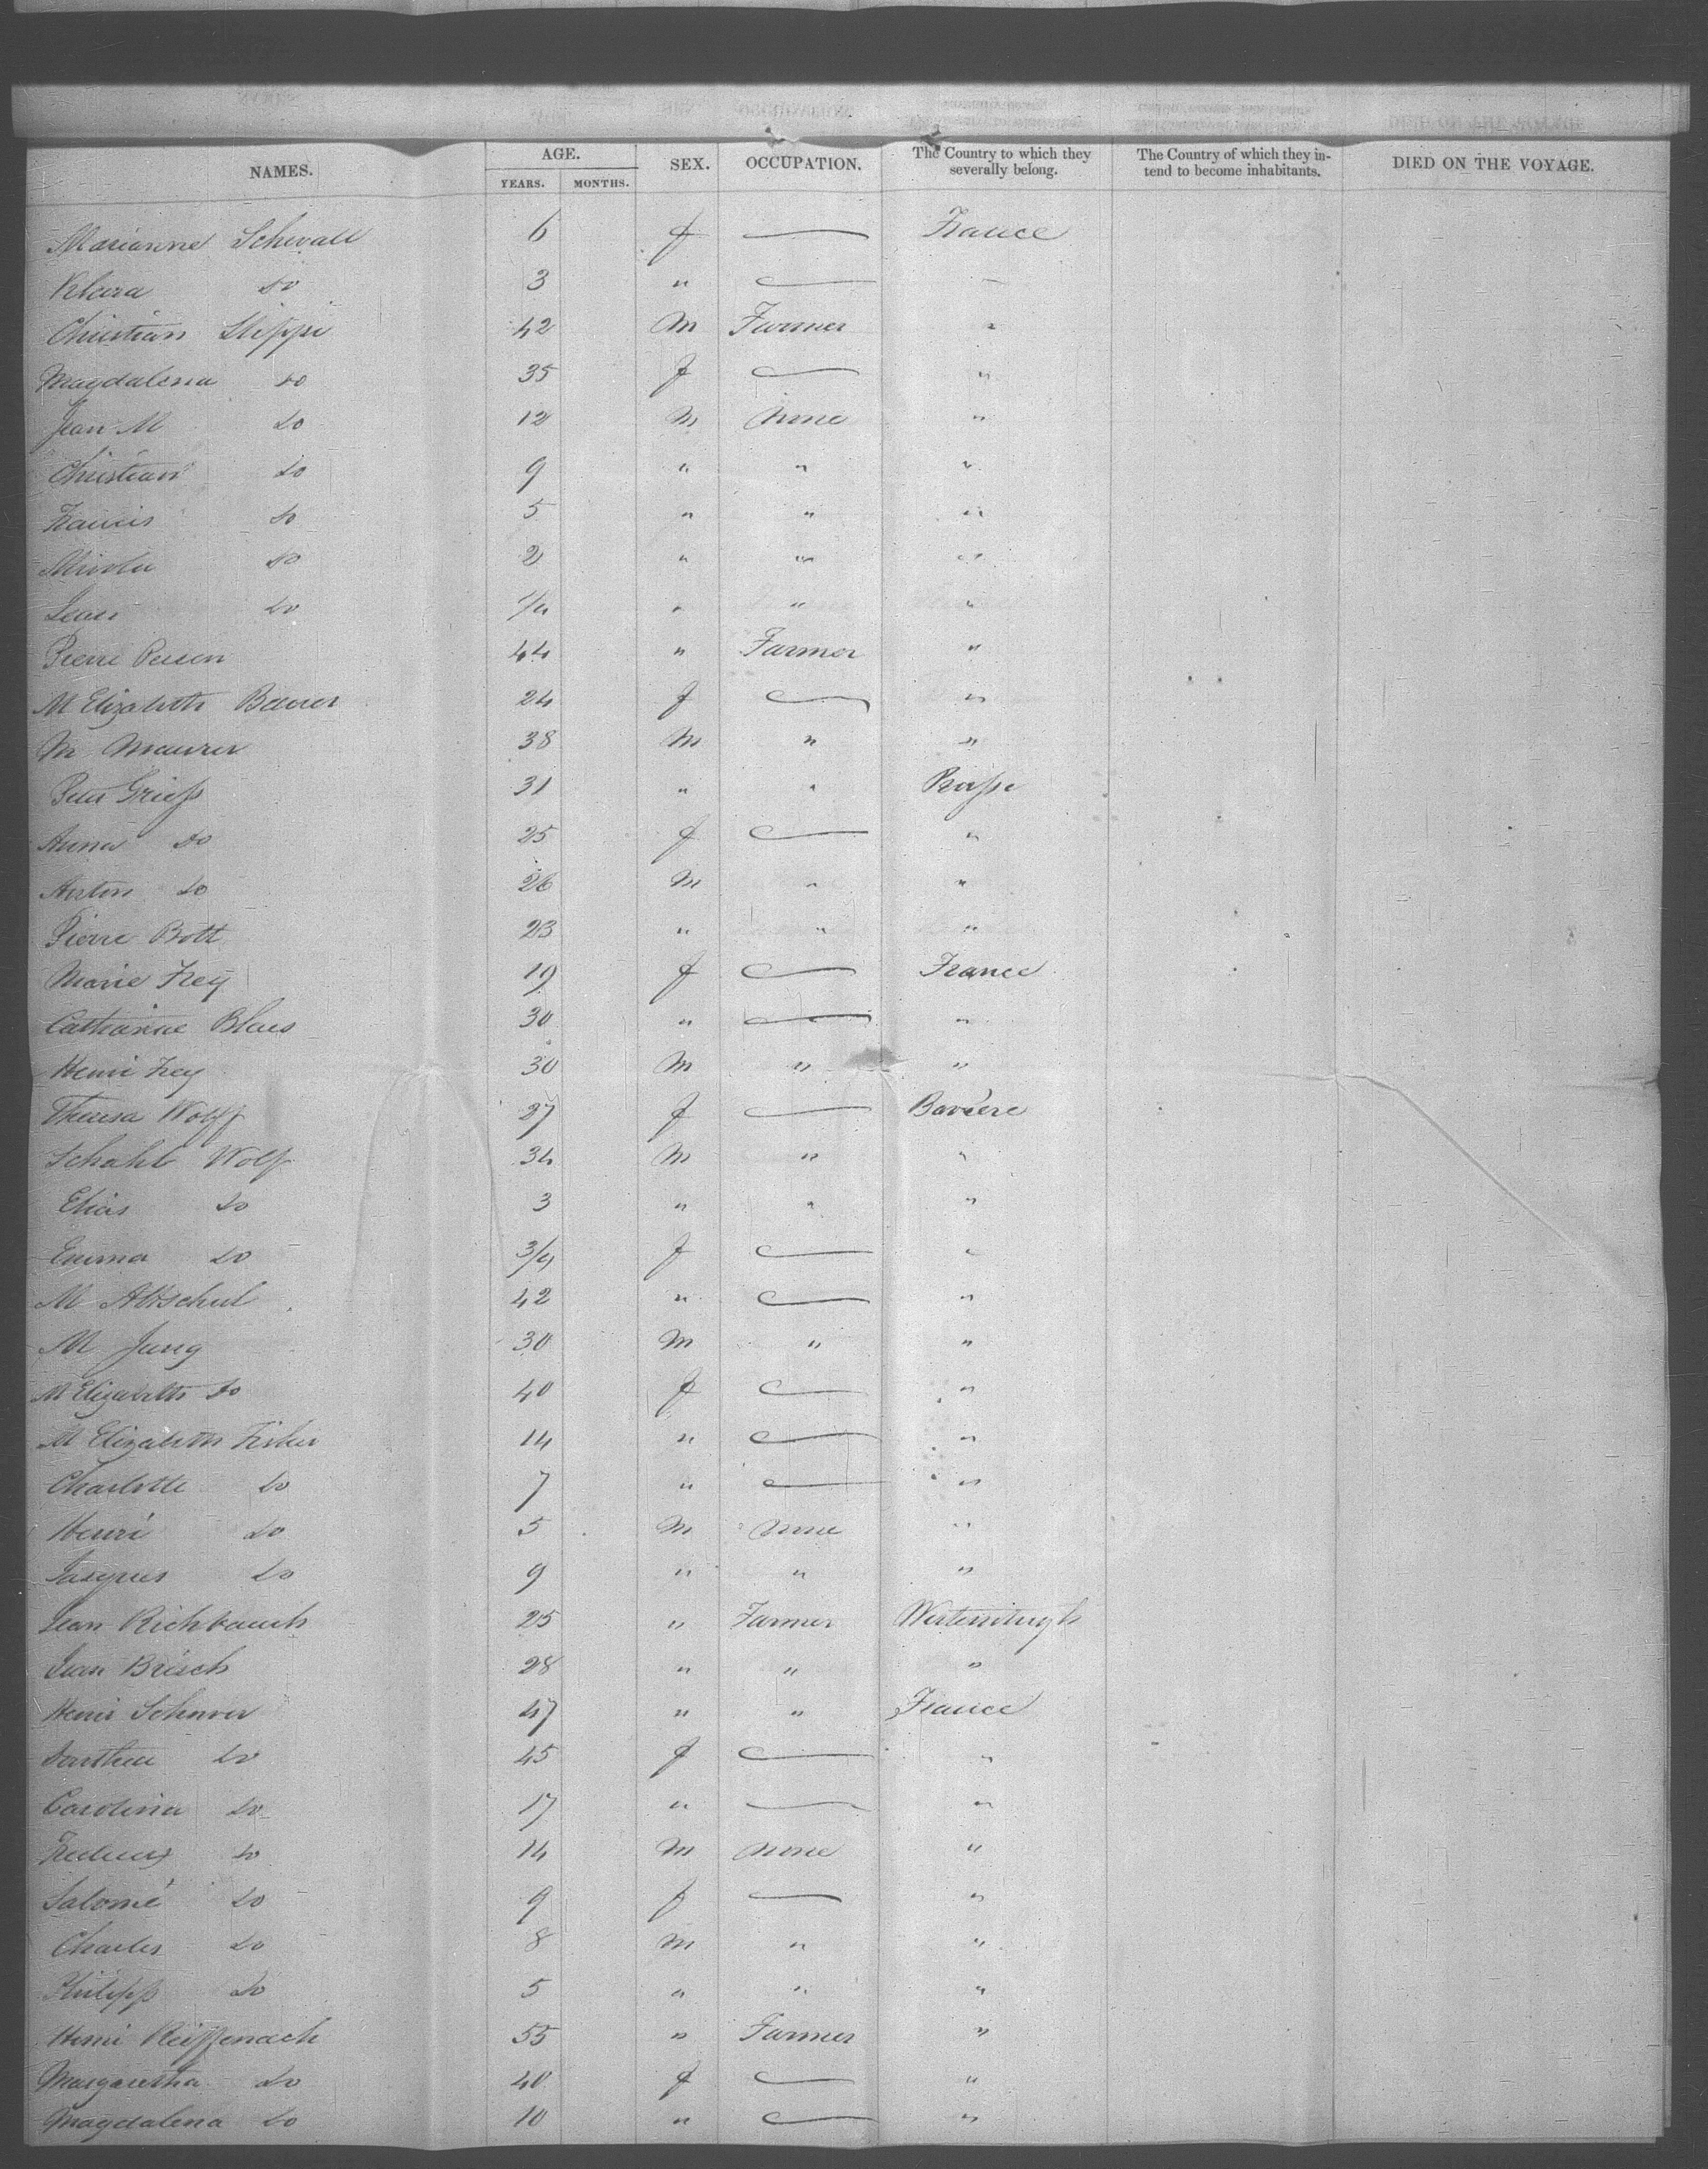 NAMES. AGE. YEARS. MONTHS. SEX. OCCUPATION. The Country to which they severally belong. The Country of which they intend to become inhabitants. DIED ON THE VOYAGE.
Marianne Schwall 6 f — France
Klara do 3 " — "
Christian Steppi 42 M Farmer "
Magdalena do 35 f — "
Jean M do 12 M None "
Christian do 9 " " "
Francis do 5 " " "
do 2 " " "
Jean do 1/4 " " "
Pierre 44 " Farmer "
M Elizabeth Bauer 24 f — "
M Maurer 38 M " "
Peter Grieß 31 " " Prusse
Anna do 25 f — "
Anton do 26 M " "
Pierre Bott 23 " " "
Marie Frey 19 f — France
Catharine Blaes 30 " — "
Henri Frey 30 M " "
Theresa Wolff 27 f — Baviere
Wolf 34 M " "
Elias do 3 " " "
Emma do 3/4 f — "
M Altschul 42 " — "
M Jung 30 M " "
M Elizabeth do 40 f — "
M Elizabeth Fisher 14 " — "
Charlotte do 7 " — "
Henri do 5 M None "
Jacques do 9 " " "
Jean Richbauch 25 " Farmer
Jean Brisch 28 " " "
Henri 47 " " France
do 45 f — "
Carolina do 17 " — "
do 14 M None "
Salomé do 9 f — "
Charles do 8 M " "
Philipp do 5 " " "
Henri Reiffenach 55 " Farmer "
Margaretha do 40 f — "
Magdalena do 10 " — "